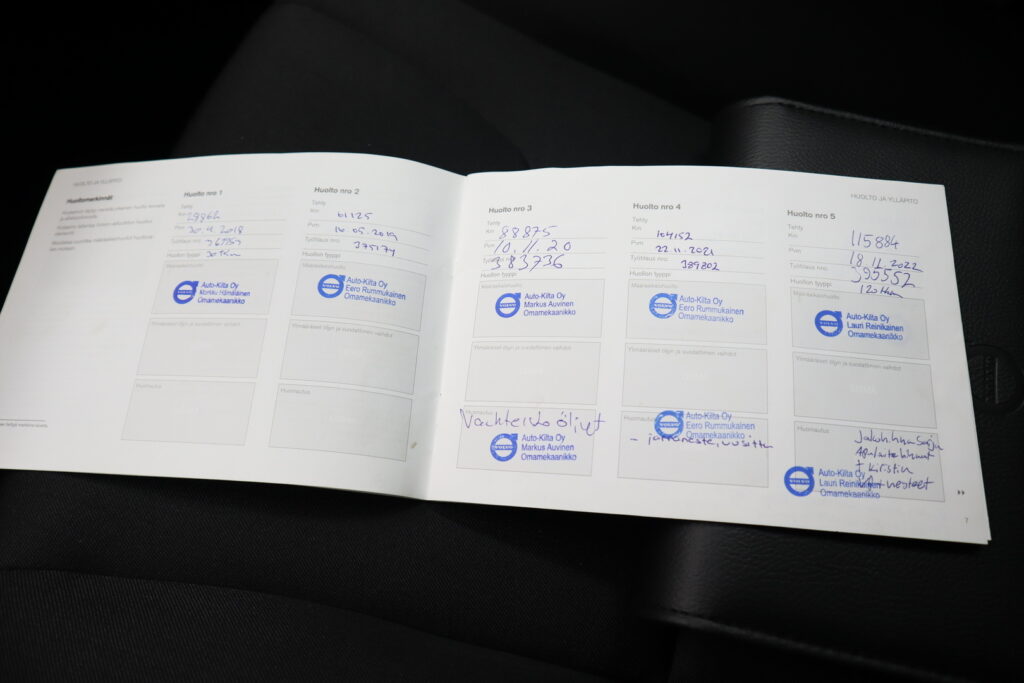 HUOLTO JA YLLÄPITO
Huoltomerkinnät
Huolto nro 1
Tehty
Km
Pvm 30.4.2018
Työtilaus nro:
Huollon tyyppi
Määräaikaishuolto
Auto-Kilta Oy
Markku Hämäläinen
Omamekaanikko
Huomautus
Huolto nro 2
Tehty
Km 61125
Pvm 16.05.2019
Työtilaus nro: 375174
Huollon tyyppi
Määräaikaishuolto
VOLVO
Auto-Kilta Oy
Eero Rummukainen
Omamekaanikko
Ylimääräiset öljyn ja suodattimen vaihdot
Huomautus
Huolto nro 3
Tehty
Km 88875
Pvm 10.11.20
383736
Huollon tyyppi
Määräaikaishuolto
VOLVO
Auto-Kilta Oy
Markus Auvinen
Omamekaanikko
Ylimääräiset öljyn ja suodattimen vaihdot
Huomautus
öljyt
VOLVO
Auto-Kilta Oy
Markus Auvinen
Omamekaanikko
Huolto nro 4
Tehty
Km 104152
Pvm 22.11.2021
Työtilaus nro: 389802
Huollon tyyppi
Määräaikaishuolto
VOLVO
Auto-Kilta Oy
Eero Rummukainen
Omamekaanikko
Ylimääräiset öljyn ja suodattimen vaihdot
Huomautus
Auto-Kilta Oy
Eero Rummukainen
Omamekaanikko
- jarruneste, uusittu
HUOLTO JA YLLÄPITO
Huolto nro 5
Tehty
Km 115884
Pvm 18.11.2022
Työtilaus nro: 395552
Huollon tyyppi 120tkm
Määräaikaishuolto
VOLVO
Auto-Kilta Oy
Lauri Reinikainen
Omamekaanikko
Ylimääräiset öljyn ja suodattimen vaihdot
Huomautus
Jakohihnasarja
Apulaitehihnat
+ kiristin
VOLVO
Auto-Kilta Oy
Lauri Reinikainen
Omamekaanikko
7